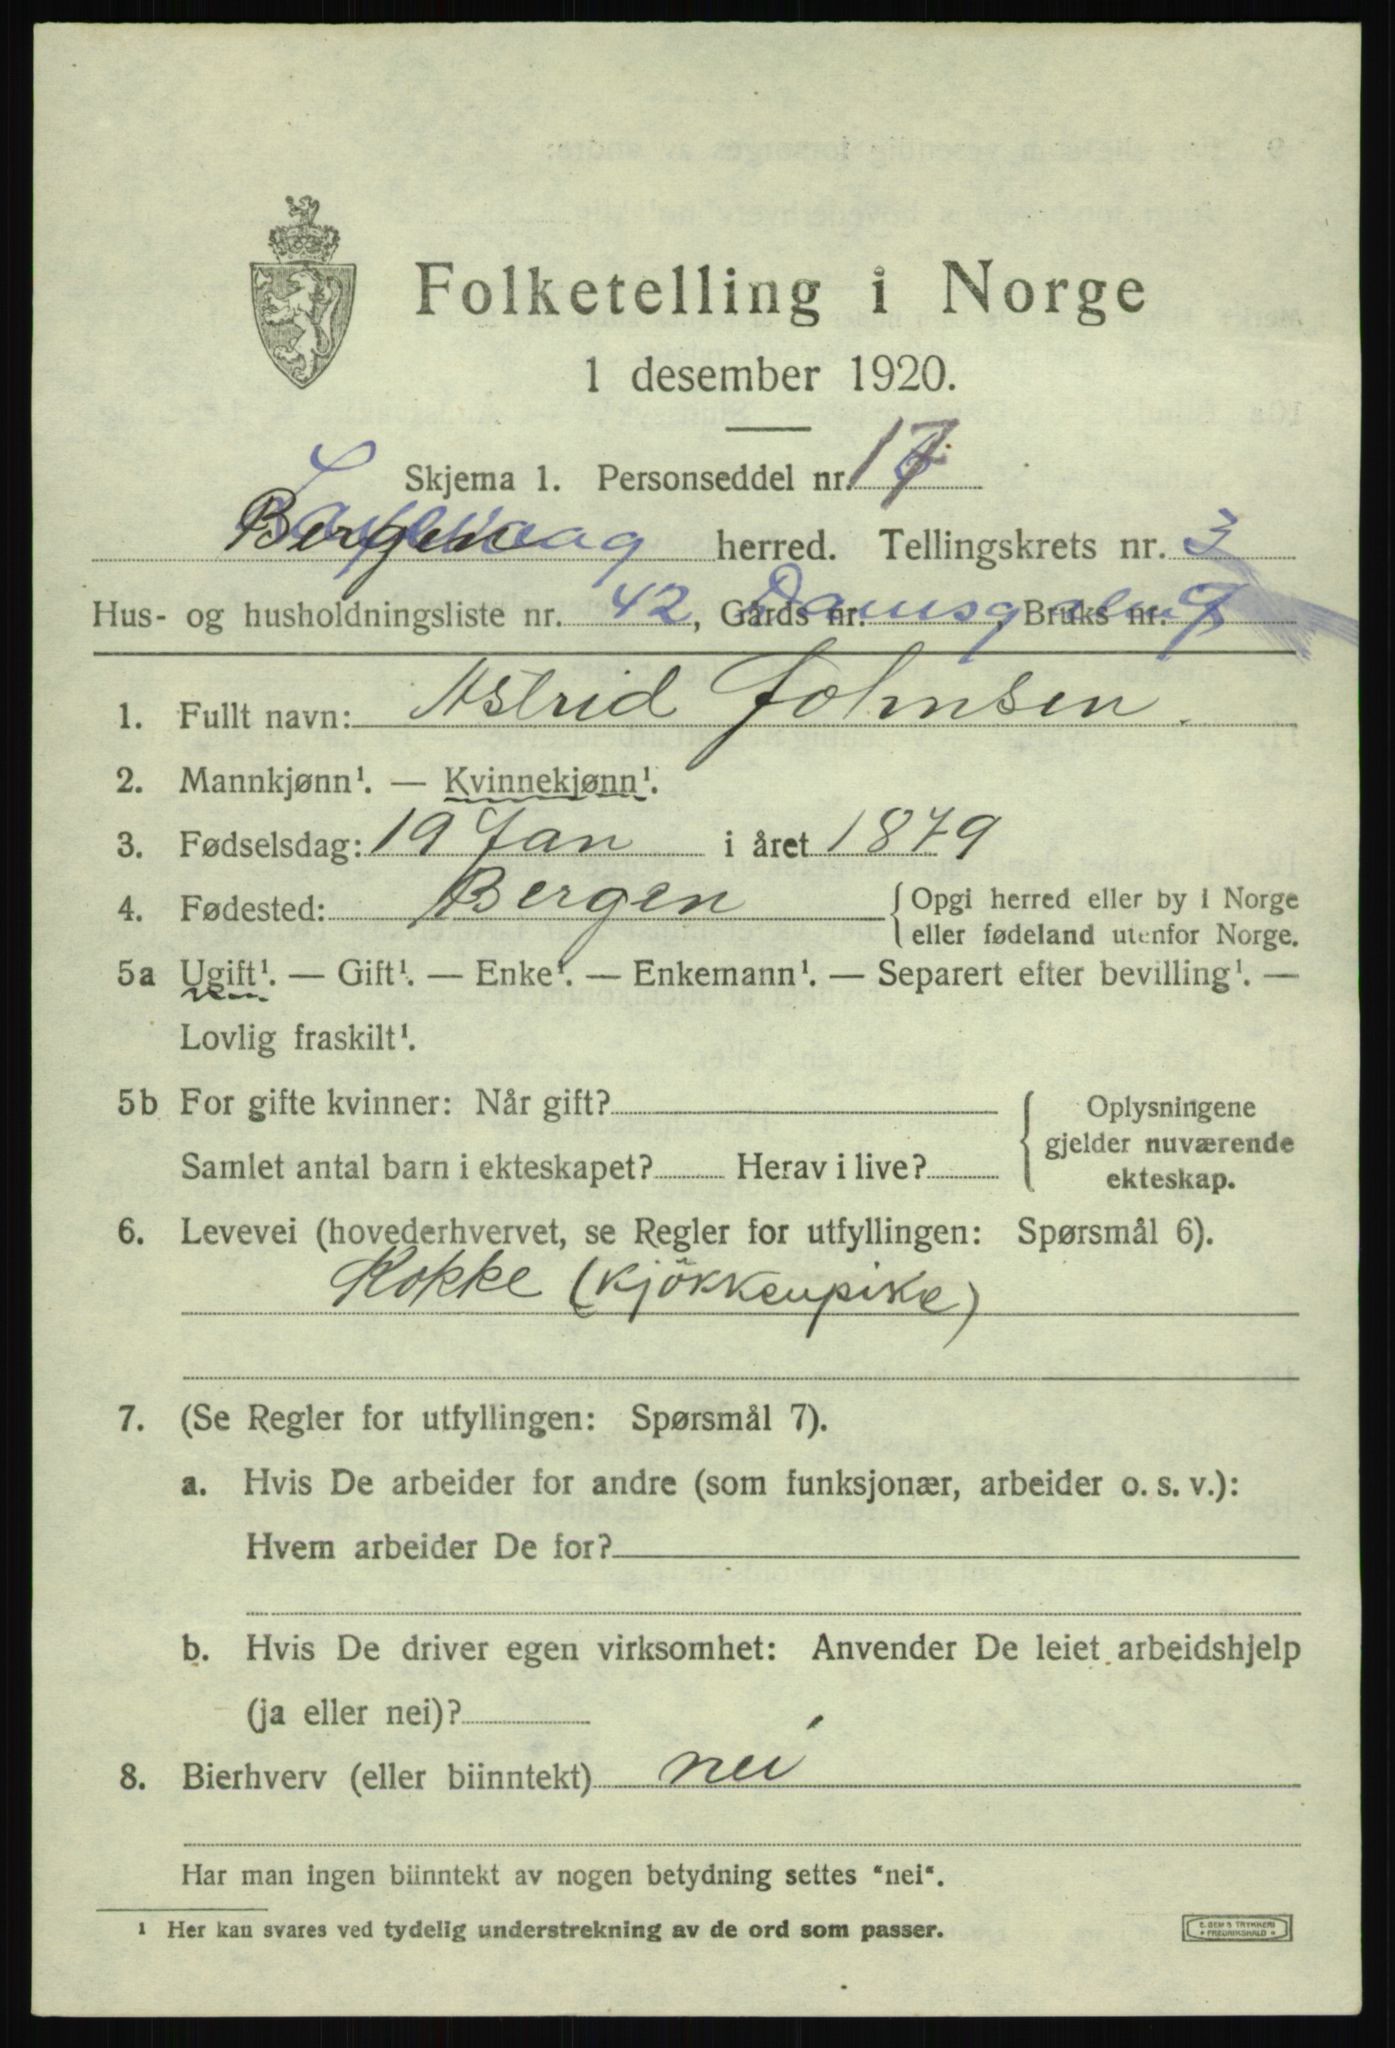 Folketelling i Norge
1 desember 1920.
Skjema 1. Personseddel nr. 17
Bergen Laksevaag herred. Tellingskrets nr. 3
Hus- og husholdningsliste nr. 42, Gårds nr. Damsgaard, Bruks nr.
1. Fullt navn: Astrid Johnsen.
2. Mannkjønn¹. — Kvinnekjønn¹.
3. Fødselsdag: 19 Jan i året 1879
4. Fødested: Bergen { Opgi herred eller by i Norge
eller fødeland utenfor Norge.
5a Ugift¹. — Gift¹. — Enke¹. — Enkemann¹. — Separert efter bevilling¹. —
Lovlig fraskilt¹.
5b For gifte kvinner: Når gift? { Oplysningene
gjelder nuværende
Samlet antal barn i ekteskapet? Herav i live? ekteskap.
6. Levevei (hovederhvervet, se Regler for utfyllingen: Spørsmål 6).
Kokke (kjökkenpike)
7. (Se Regler for utfyllingen: Spørsmål 7).
a. Hvis De arbeider for andre (som funksjonær, arbeider o. s. v.):
Hvem arbeider De for?
b. Hvis De driver egen virksomhet: Anvender De leiet arbeidshjelp
(ja eller nei)?
8. Bierhverv (eller biinntekt) nei
Har man ingen biinntekt av nogen betydning settes “nei“.
¹ Her kan svares ved tydelig understrekning av de ord som passer.
E. SEM'S TRYKKERI
FREDRIKSHALD